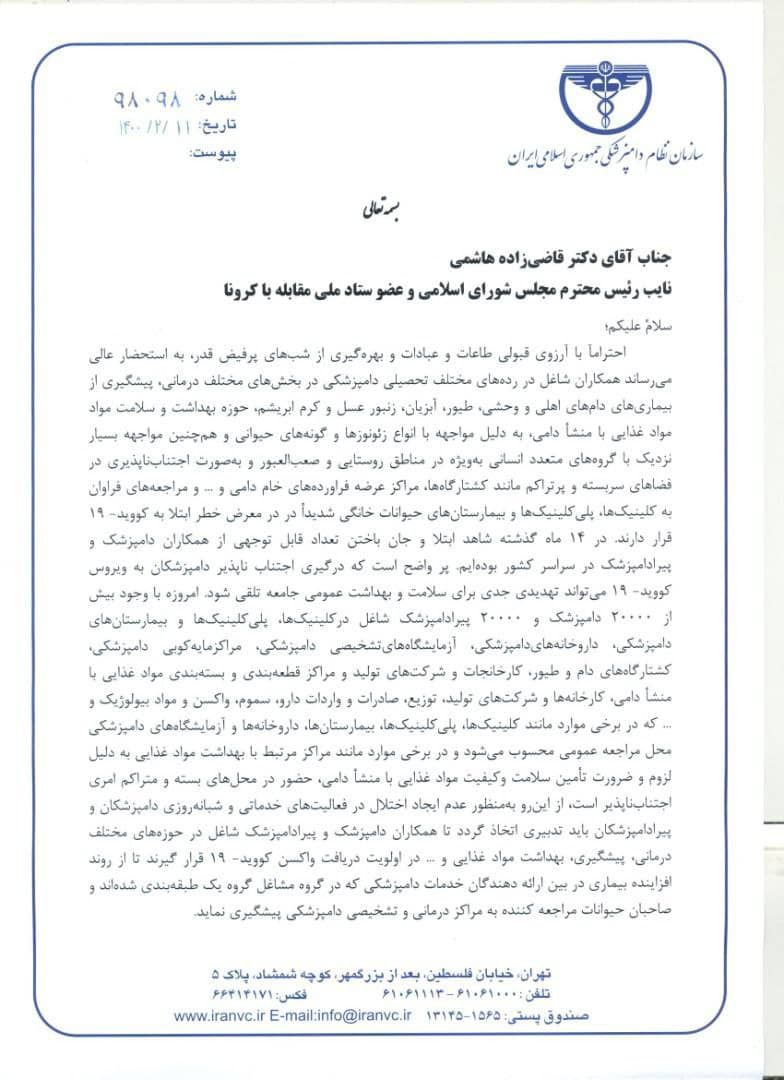 سازمان نظام دامپزشکی جمهوری اسلامی ایران
شماره: ۹۸۰۹۸
تاریخ: ۱۴۰۰/۲/۱۱
پیوست:
بسمه تعالی
جناب آقای دکتر قاضی‌زاده هاشمی
نایب رئیس محترم مجلس شورای اسلامی و عضو ستاد ملی مقابله با کرونا
سلامٌ علیکم؛
احتراماً با آرزوی قبولی طاعات و عبادات و بهره‌گیری از شب‌های پرفیض قدر، به استحضار عالی
می‌رساند همکاران شاغل در رده‌های مختلف تحصیلی دامپزشکی در بخش‌های مختلف درمانی، پیشگیری از
بیماری‌های دام‌های اهلی و وحشی، طیور، آبزیان، زنبور عسل و کرم ابریشم، حوزه بهداشت و سلامت مواد
غذایی با منشأ دامی، به دلیل مواجهه با انواع زئونوزها و گونه‌های حیوانی و هم‌چنین مواجهه بسیار
نزدیک با گروه‌های متعدد انسانی به‌ویژه در مناطق روستایی و صعب‌العبور و به‌صورت اجتناب‌ناپذیری در
فضاهای سربسته و پرتراکم مانند کشتارگاه‌ها، مراکز عرضه فراورده‌های خام دامی و ... و مراجعه‌های فراوان
به کلینیک‌ها، پلی‌کلینیک‌ها و بیمارستان‌های حیوانات خانگی شدیداً در در معرض خطر ابتلا به کووید- ۱۹
قرار دارند. در ۱۴ ماه گذشته شاهد ابتلا و جان باختن تعداد قابل توجهی از همکاران دامپزشک و
پیرادامپزشک در سراسر کشور بوده‌ایم. پر واضح است که درگیری اجتناب ناپذیر دامپزشکان به ویروس
کووید- ۱۹ می‌تواند تهدیدی جدی برای سلامت و بهداشت عمومی جامعه تلقی شود. امروزه با وجود بیش
از ۲۰۰۰۰ دامپزشک و ۲۰۰۰۰ پیرادامپزشک شاغل درکلینیک‌ها، پلی‌کلینیک‌ها و بیمارستان‌های
دامپزشکی، داروخانه‌های‌دامپزشکی، آزمایشگاه‌های‌تشخیصی دامپزشکی، مراکزمایه‌کوبی دامپزشکی،
کشتارگاه‌های دام و طیور، کارخانجات و شرکت‌های تولید و مراکز قطعه‌بندی و بسته‌بندی مواد غذایی با
منشأ دامی، کارخانه‌ها و شرکت‌های تولید، توزیع، صادرات و واردات دارو، سموم، واکسن و مواد بیولوژیک و
... که در برخی موارد مانند کلینیک‌ها، پلی‌کلینیک‌ها، بیمارستان‌ها، داروخانه‌ها و آزمایشگاه‌های دامپزشکی
محل مراجعه عمومی محسوب می‌شود و در برخی موارد مانند مراکز مرتبط با بهداشت مواد غذایی به دلیل
لزوم و ضرورت تأمین سلامت وکیفیت مواد غذایی با منشأ دامی، حضور در محل‌های بسته و متراکم امری
اجتناب‌ناپذیر است، از این‌رو به‌منظور عدم ایجاد اختلال در فعالیت‌های خدماتی و شبانه‌روزی دامپزشکان و
پیرادامپزشکان باید تدبیری اتخاذ گردد تا همکاران دامپزشک و پیرادامپزشک شاغل در حوزه‌های مختلف
درمانی، پیشگیری، بهداشت مواد غذایی و ... در اولویت دریافت واکسن کووید- ۱۹ قرار گیرند تا از روند
افزاینده بیماری در بین ارائه دهندگان خدمات دامپزشکی که در گروه مشاغل گروه یک طبقه‌بندی شده‌اند و
صاحبان حیوانات مراجعه کننده به مراکز درمانی و تشخیصی دامپزشکی پیشگیری نماید.
تهران، خیابان فلسطین، بعد از بزرگمهر، کوچه شمشاد، پلاک ۵
تلفن: ۶۱۰۶۱۰۰۰ - ۶۱۰۶۱۱۱۳ فکس: ۶۶۴۱۴۱۷۱
صندوق پستی: ۱۵۶۵-۱۳۱۴۵ www.iranvc.ir E-mail:info@iranvc.ir